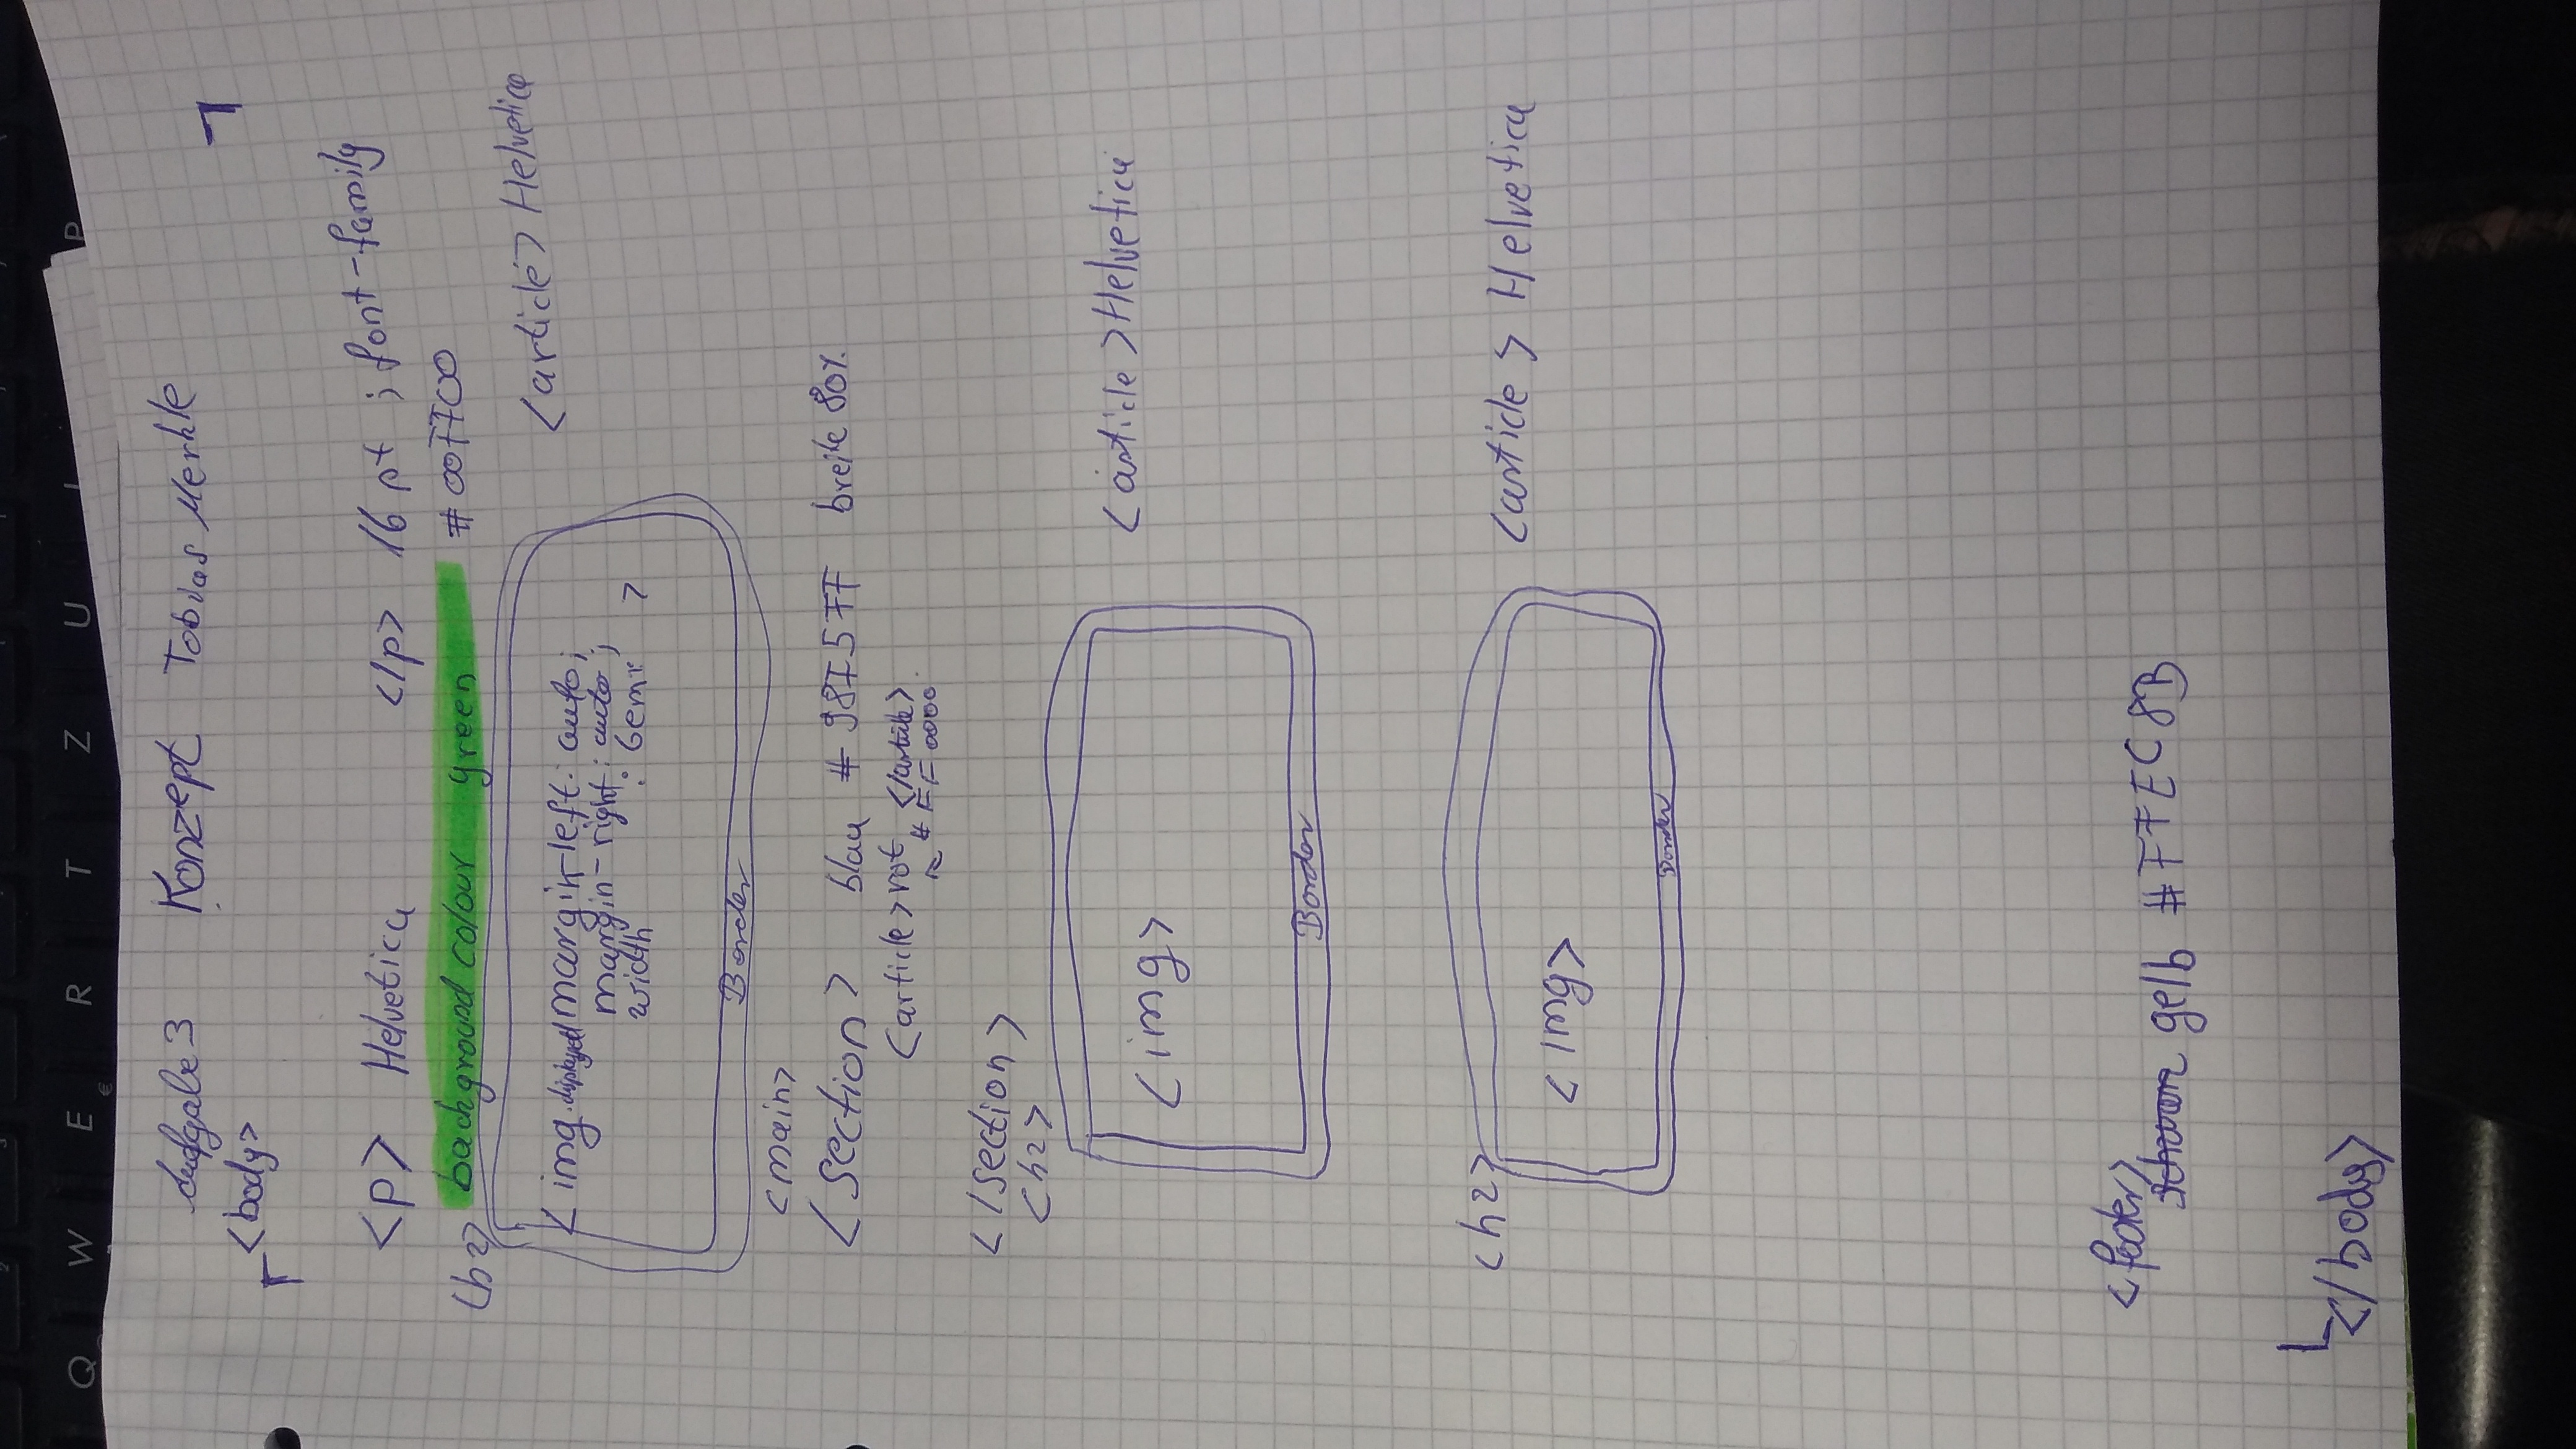 Q W E R T Z U I P
€
Aufgabe 3 Konzept Tobias Merkle
<body>
<p> Helvetica </p> 16 pt ; font-family
<h2> background colour green #00FF00
<article> Helvetica
<img. displayed margin-left: auto;
margin-right: auto;
width : 6em; >
Border
<main>
<section> blau #98F5FF breite 80%
<article> rot </article>
#FF0000
</section>
<h2>
<img>
<article> Helvetica
Border
<h2>
<img>
<article> Helvetica
Border
<footer>
schwarz gelb #FFEC8B
</body>